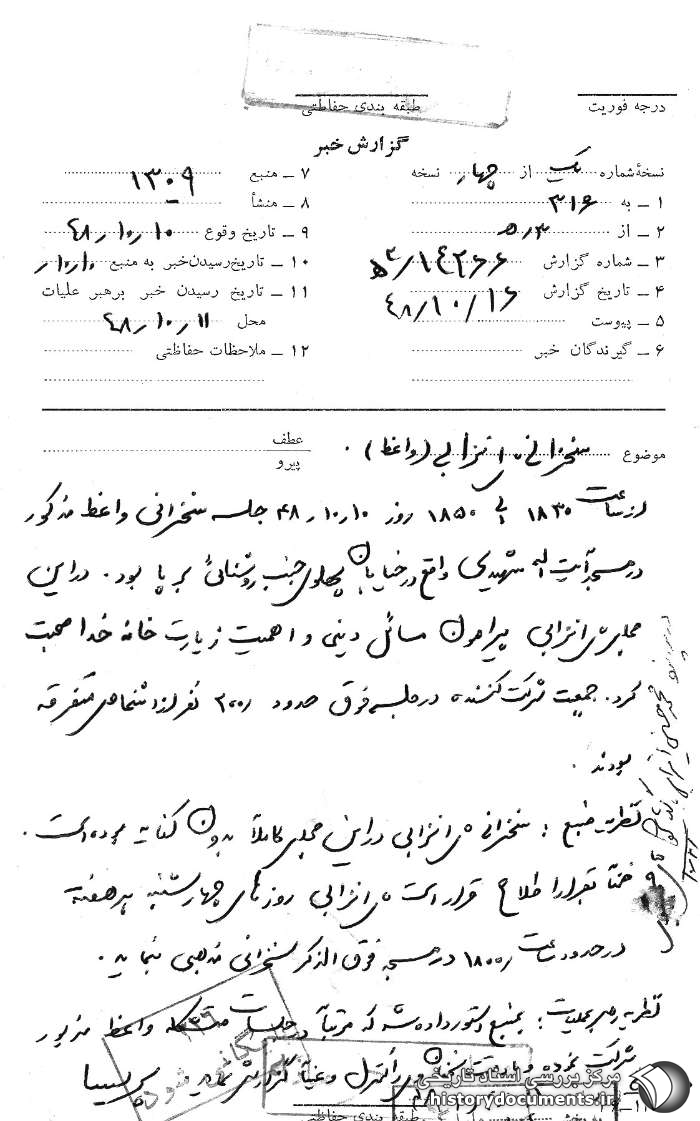 درجه فوریت
طبقه بندی حفاظتی
گزارش خبر
نسخهٔ شماره یک از چهار نسخه
۱ ـ به ۳۱۶
۲ ـ از ۵ه۳
۳ ـ شماره گزارش ۱۴۲۶۶/ه۳
۴ ـ تاریخ گزارش ۴۸/۱۰/۱۶
۵ ـ پیوست
۶ ـ گیرندگان خبر
۷ ـ منبع ۱۳۰۹
۸ ـ منشأ
۹ ـ تاریخ وقوع ۴۸ر۱۰ر۱۰
۱۰ ـ تاریخ رسیدن خبر به منبع ۱۰ر۱۰ر
۱۱ ـ تاریخ رسیدن خبر برهبر علیات
محل ۴۸ر۱۰ر۱۱
۱۲ ـ ملاحظات حفاظتی
موضوع سخنرانی انزابی (واعظ) .
عطف
پیرو
از ساعت ۱۸۳۰ الی ۱۸۵۰ روز ۱۰ر۱۰ر۴۸ جلسه سخنرانی واعظ مذکور
در مسجد آیت اله شهیدی واقع در خیابان پهلوی جنب روشنائی برپا بود . در این
مجلس انزابی پیرامون مسائل دینی و اهمیت زیارت خانه خدا صحبت
کرد . جمعیت شرکت کننده در جلسه فوق حدود ۲۰۰ نفر از اشخاص متفرقه
بودند .
نظریه منبع : سخنرانی انزابی در این مجلس کاملاً بدون کنایه بوده است .
ضمناً بقرار اطلاع قرار است انزابی روزهای چهارشنبه هر هفته
در حدود ساعت ۱۸۰۰ در مسجد فوق الذکر سخنرانی مذهبی نماید .
نظریه رهبر عملیات : بمنبع دستور داده شد که مرتباً در جلسات متشکله واعظ مزبور
شرکت نموده و کنترل و عیناً گزارش نماید
مرکز بررسی اسناد تاریخی
historydocuments.ir
طبقه بندی حفاظتی